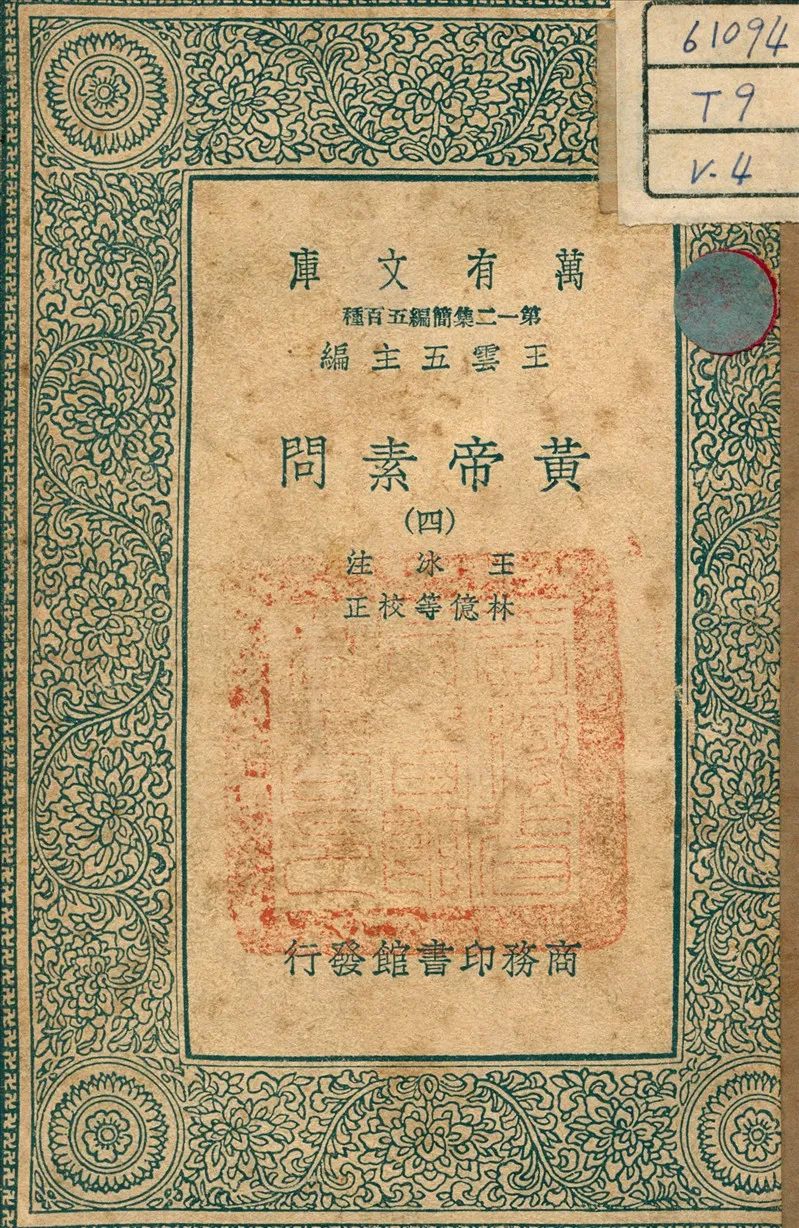 61094
T9
V.4
萬有文庫
第一二集簡編五百種
王雲五主編
黃帝素問
(四)
王冰注
林億等校正
商務印書館發行